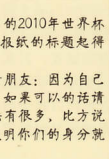 的2010年世界杯
报纸的标题起得
朋友：因为自己
如果可以的话请
有很多，比方说
明你们的身分就